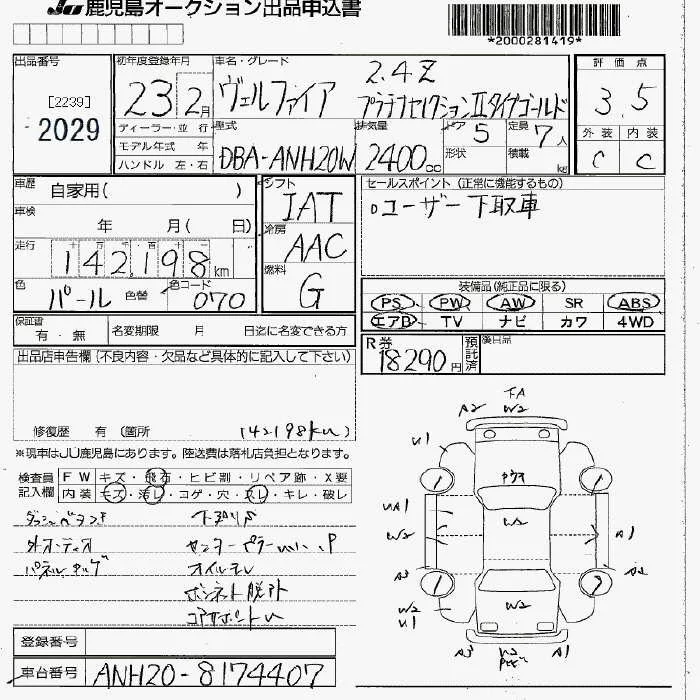 JU 鹿児島オークション出品申込書
*2000281419*
出品番号
[2239]
2029
初年度登録年月
23年 2月
ディーラー・並 行
モデル年式 年
ハンドル 左・右
車名・グレード
ヴェルファイア
2.4Z
プラチナセレクションⅡタイプゴールド
型式
DBA-ANH20W
排気量
2400cc
ドア 5
形状
定員 7人
積載 kg
評価点
3.5
外装 内装
C C
車歴 自家用( )
車検 年 月( 日)
走行 十 万 千 百 十 一
142,198 km
色 パール 色替 色コード 070
シフト
IAT
冷房
AAC
燃料
G
セールスポイント (正常に機能するもの)
ユーザー下取車
装備品(純正品に限る)
PS PW AW SR ABS
エアB TV ナビ カワ 4WD
保証書
有・無
名変期限 月 日迄に名変できる方
R券
18290円
預託済
後日品
出品店申告欄 (不良内容・欠品など具体的に記入して下さい)
修復歴 有 (箇所
142198km)
※現車はJU鹿児島にあります。陸送費は落札店負担となります。
検査員
記入欄
FW キズ・飛石・ヒビ割・リペア跡・X要
内装 キズ・汚レ・コゲ・穴・スレ・キレ・破レ
オイルモレ
ボンネット脱外
コアサポート
U1 A2 W2
UA1 W2 W2 A1
A3
W2
U1 W2
A3 W2 A1
登録番号
車台番号 ANH20-8174407